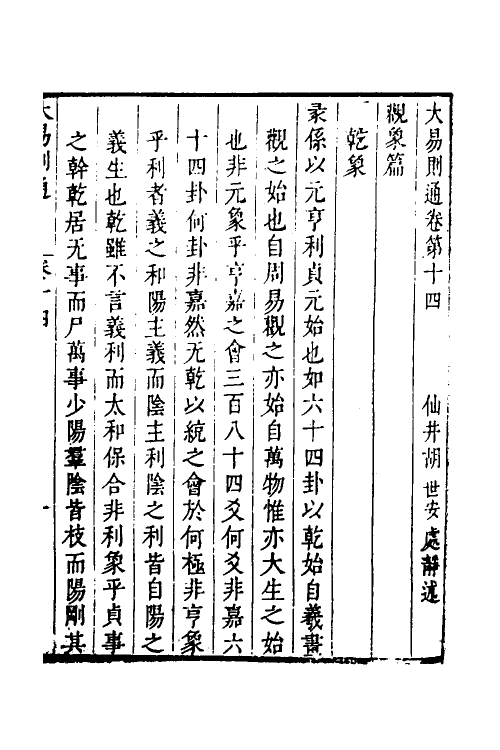 大易則通卷第十四　仙井胡世安處靜述
觀象篇
乾象
彖係以元亨利貞元始也如六十四卦以乾始自羲畫
觀之始也自周易觀之亦始自萬物惟亦大生之始
也非元象乎亨嘉之會三百八十四爻何爻非嘉六
十四卦何卦非嘉然无乾以統之會於何極非亨象
乎利者義之和陽主義而陰主利陰之利皆自陽之
義生也乾雖不言義利而太和保合非利象乎貞事
之幹乾居无事而尸萬事少陽羣陰皆枝而陽剛其
大易則通　卷十四　一